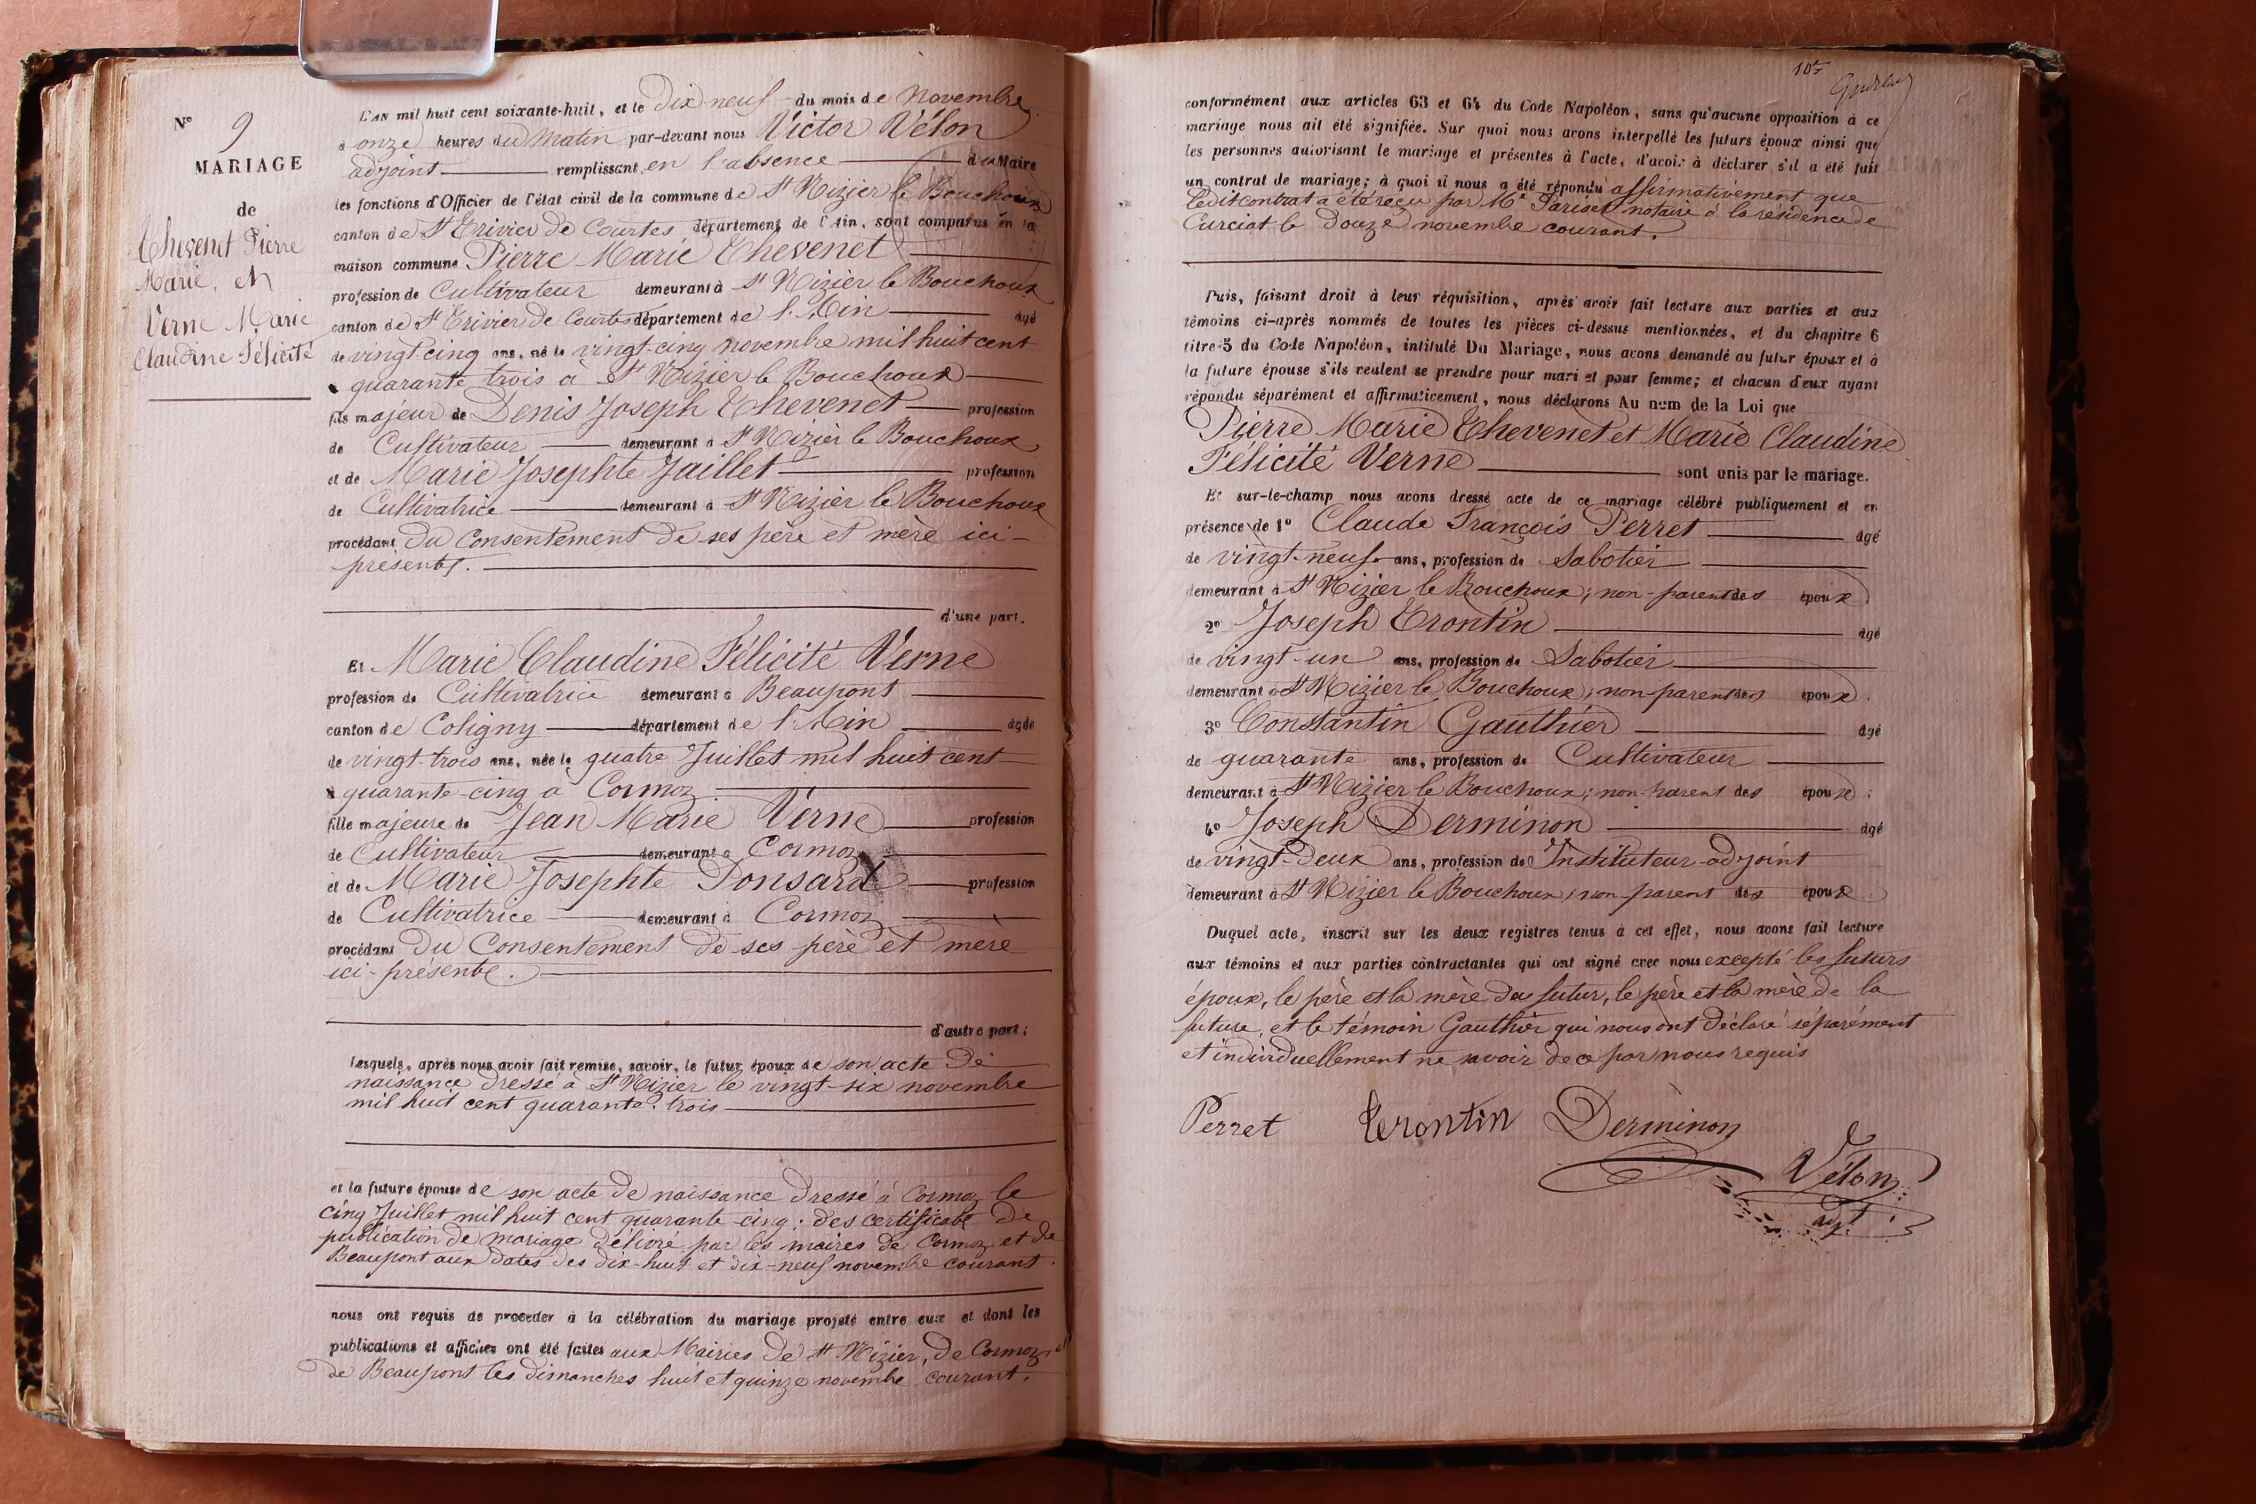 N° 9
MARIAGE
de
Thevenet Pierre
Marie, et
Verne Marie
Claudine Félicité
L'AN mil huit cent soixante-huit, et le dix neuf du mois de Novembre
à onze heures du matin par-devant nous Victor Vélon
adjoint remplissant en l'absence du Maire
les fonctions d'Officier de l'état civil de la commune de St Nizier le Bouchoux
canton de St Trivier de Courtes département de l'Ain, sont comparus en la
maison commune Pierre Marie Thevenet
profession de Cultivateur demeurant à St Nizier le Bouchoux
canton de St Trivier de Courtes département de l'Ain âgé
de vingt-cinq ans, né le vingt-cinq novembre mil huit cent
quarante trois à St Nizier le Bouchoux
fils majeur de Denis Joseph Thevenet profession
de Cultivateur demeurant à St Nizier le Bouchoux
et de Marie Josephte Jaillet profession
de Cultivatrice demeurant à St Nizier le Bouchoux
procédant du consentement de ses père et mère ici-
présents.
d'une part.
Et Marie Claudine Félicité Verne
profession de Cultivatrice demeurant à Beaupont
canton de Coligny département de l'Ain âgée
de vingt-trois ans, née le quatre Juillet mil huit cent
quarante-cinq à Cormoz
fille majeure de Jean Marie Verne profession
de Cultivateur demeurant à Cormoz
et de Marie Josephte Ponsard profession
de Cultivatrice demeurant à Cormoz
procédant du consentement de ses père et mère
ici-présents.
d'autre part;
Lesquels, après nous avoir fait remise, savoir, le futur époux de son acte de
naissance dressé à St Nizier le vingt-six novembre
mil huit cent quarante-trois
et la future épouse de son acte de naissance dressé à Cormoz le
cinq Juillet mil huit cent quarante-cinq; des certificats de
publication de mariage délivré par les maires de Cormoz et de
Beaupont aux dates des dix-huit et dix-neuf novembre courant.
nous ont requis de procéder à la célébration du mariage projeté entre eux et dont les
publications et affiches ont été faites aux Mairies de St Nizier, de Cormoz et
de Beaupont les dimanches huit et quinze novembre courant.
conformément aux articles 63 et 64 du Code Napoléon, sans qu'aucune opposition à ce
mariage nous ait été signifiée. Sur quoi nous avons interpellé les futurs époux ainsi que
les personnes autorisant le mariage et présentes à l'acte, d'avoir à déclarer s'il a été fait
un contrat de mariage; à quoi il nous a été répondu affirmativement que
ledit contrat a été reçu par Me Pariset notaire à la résidence de
Curciat le Douze novembre courant.
Puis, faisant droit à leur réquisition, après avoir fait lecture aux parties et aux
témoins ci-après nommés de toutes les pièces ci-dessus mentionnées, et du chapitre 6
titre 5 du Code Napoléon, intitulé Du Mariage, nous avons demandé au futur époux et à
la future épouse s'ils veulent se prendre pour mari et pour femme; et chacun d'eux ayant
répondu séparément et affirmativement, nous déclarons Au nom de la Loi que
Pierre Marie Thevenet et Marie Claudine
Félicité Verne sont unis par le mariage.
Et sur-le-champ nous avons dressé acte de ce mariage célébré publiquement et en
présence de 1° Claude François Perret âgé
de vingt-neuf ans, profession de Sabotier
demeurant à St Nizier le Bouchoux; non-parent des époux.
2° Joseph Trontin âgé
de vingt-un ans, profession de Sabotier
demeurant à St Nizier le Bouchoux; non-parent des époux.
3° Constantin Gauthier âgé
de quarante ans, profession de Cultivateur
demeurant à St Nizier le Bouchoux; non-parent des époux;
4° Joseph Derminon âgé
de vingt-deux ans, profession de Instituteur-adjoint
demeurant à St Nizier le Bouchoux; non parent des époux.
Duquel acte, inscrit sur les deux registres tenus à cet effet, nous avons fait lecture
aux témoins et aux parties contractantes qui ont signé avec nous excepté les futurs
époux, le père et la mère du futur, le père et la mère de la
future, et le témoin Gauthier qui nous ont déclaré séparément
et individuellement ne savoir de ce par nous requis
Perret Trontin Derminon
Vélon
adjt